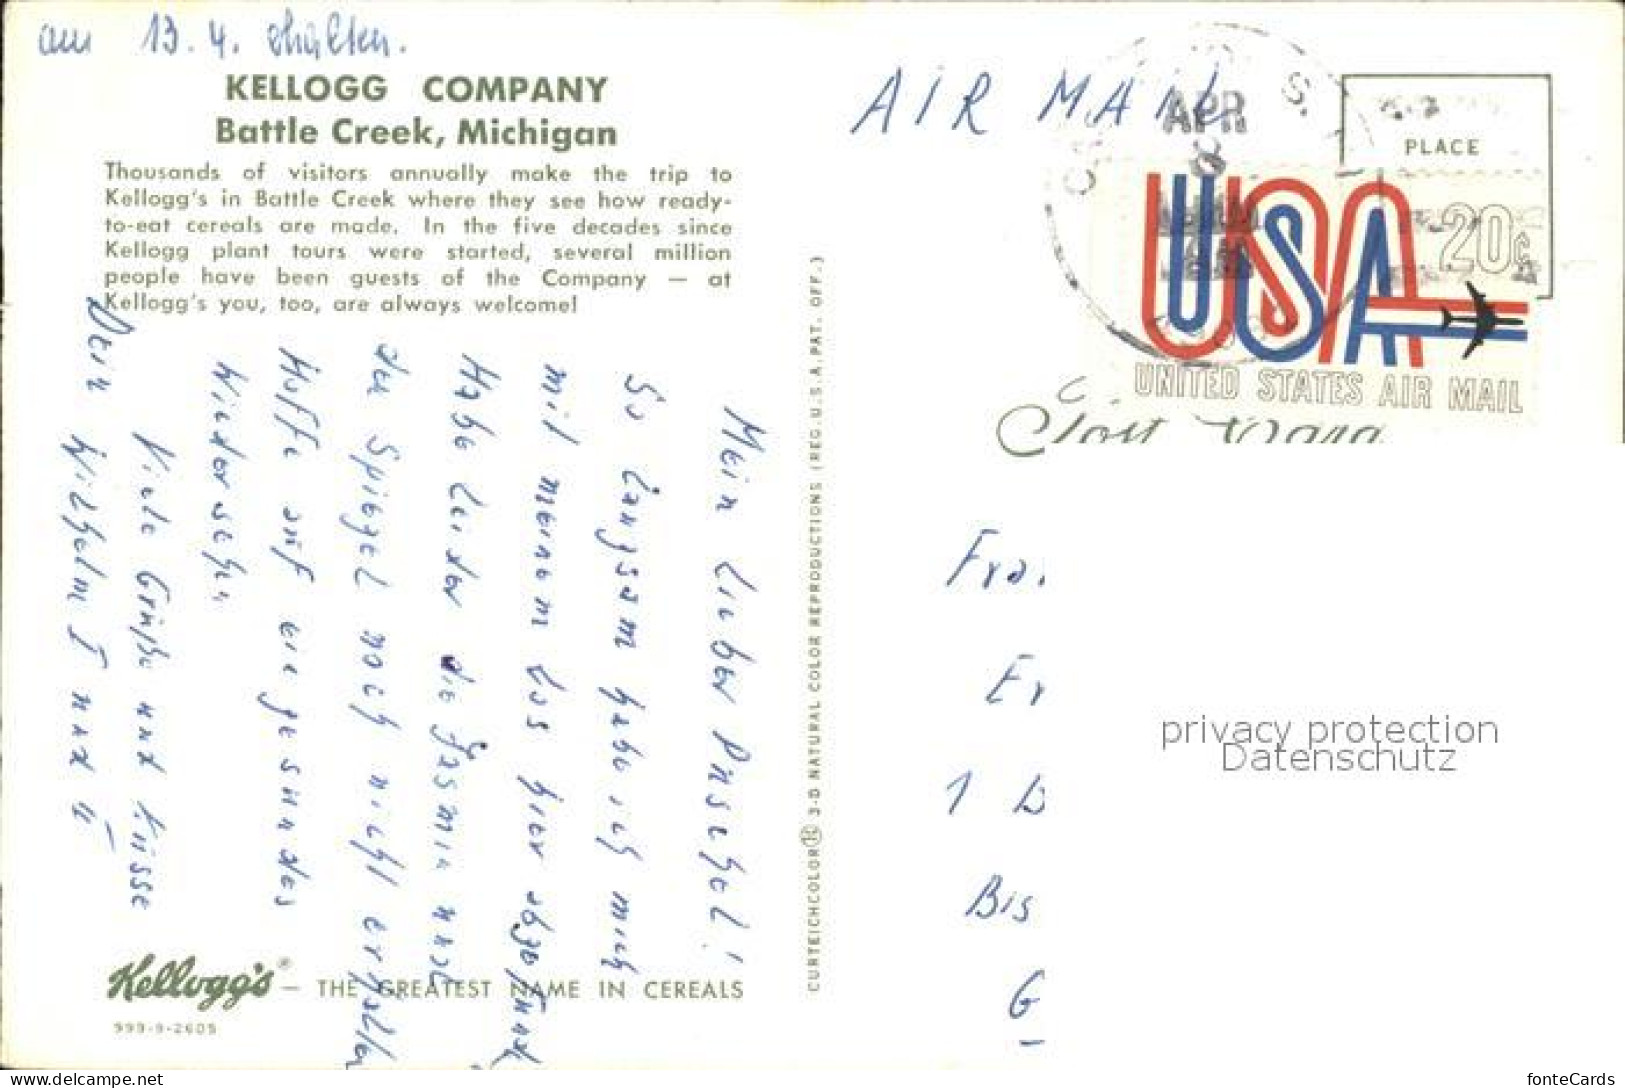 am 13.4. erhalten.
KELLOGG COMPANY
Battle Creek, Michigan
Thousands of visitors annually make the trip to
Kellogg's in Battle Creek where they see how ready-
to-eat cereals are made. In the five decades since
Kellogg plant tours were started, several million
people have been guests of the Company — at
Kellogg's you, too, are always welcome!
Mein lieber Puschel!
So langsam habe ich mich
mit meinem Los hier abgefunden
Habe leider die Jasmin und
den Spiegel noch nicht erhalten
Hoffe auf ein gesundes
Wiedersehen
Viele Grüße und Küsse
Dein Wilhelm I und II
Kellogg's® — THE GREATEST NAME IN CEREALS
999-9-2605
CURTEICHCOLOR® 3-D NATURAL COLOR REPRODUCTIONS (REG. U.S.A. PAT. OFF.)
AIR MAIL
APR
8
S.
PLACE
USA
20c
UNITED STATES AIR MAIL
Post Card
Fra
Er
1 D
Bis
G
privacy protection
Datenschutz
www.delcampe.net
fonteCards